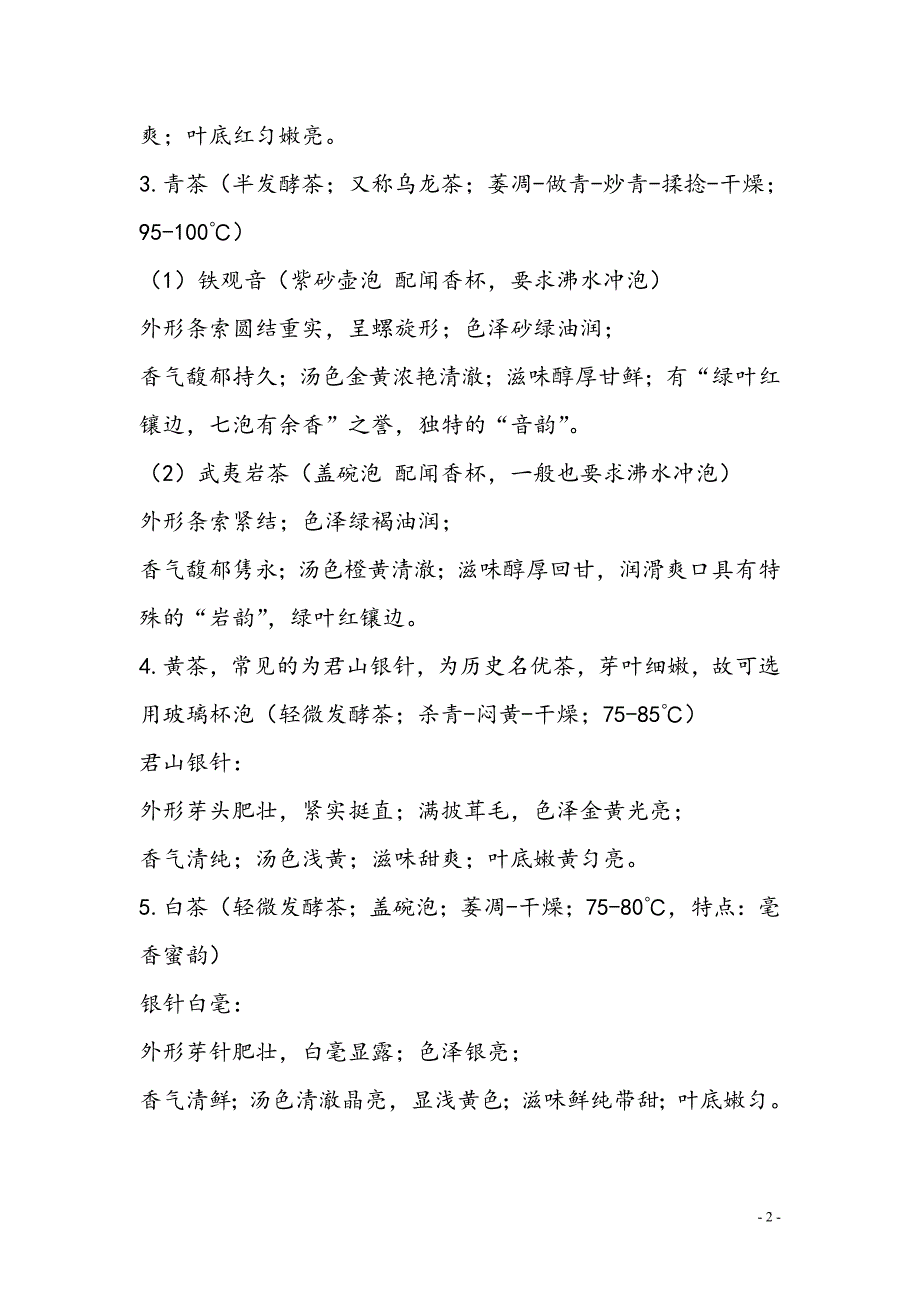 爽；叶底红匀嫩亮。
3.青茶（半发酵茶；又称乌龙茶；萎凋-做青-炒青-揉捻-干燥；
95-100℃）
（1）铁观音（紫砂壶泡 配闻香杯，要求沸水冲泡）
外形条索圆结重实，呈螺旋形；色泽砂绿油润；
香气馥郁持久；汤色金黄浓艳清澈；滋味醇厚甘鲜；有“绿叶红
镶边，七泡有余香”之誉，独特的“音韵”。
（2）武夷岩茶（盖碗泡 配闻香杯，一般也要求沸水冲泡）
外形条索紧结；色泽绿褐油润；
香气馥郁隽永；汤色橙黄清澈；滋味醇厚回甘，润滑爽口具有特
殊的“岩韵”，绿叶红镶边。
4.黄茶，常见的为君山银针，为历史名优茶，芽叶细嫩，故可选
用玻璃杯泡（轻微发酵茶；杀青-闷黄-干燥；75-85℃）
君山银针：
外形芽头肥壮，紧实挺直；满披茸毛，色泽金黄光亮；
香气清纯；汤色浅黄；滋味甜爽；叶底嫩黄匀亮。
5.白茶（轻微发酵茶；盖碗泡；萎凋-干燥；75-80℃，特点：毫
香蜜韵）
银针白毫：
外形芽针肥壮，白毫显露；色泽银亮；
香气清鲜；汤色清澈晶亮，显浅黄色；滋味鲜纯带甜；叶底嫩匀。
- 2 -